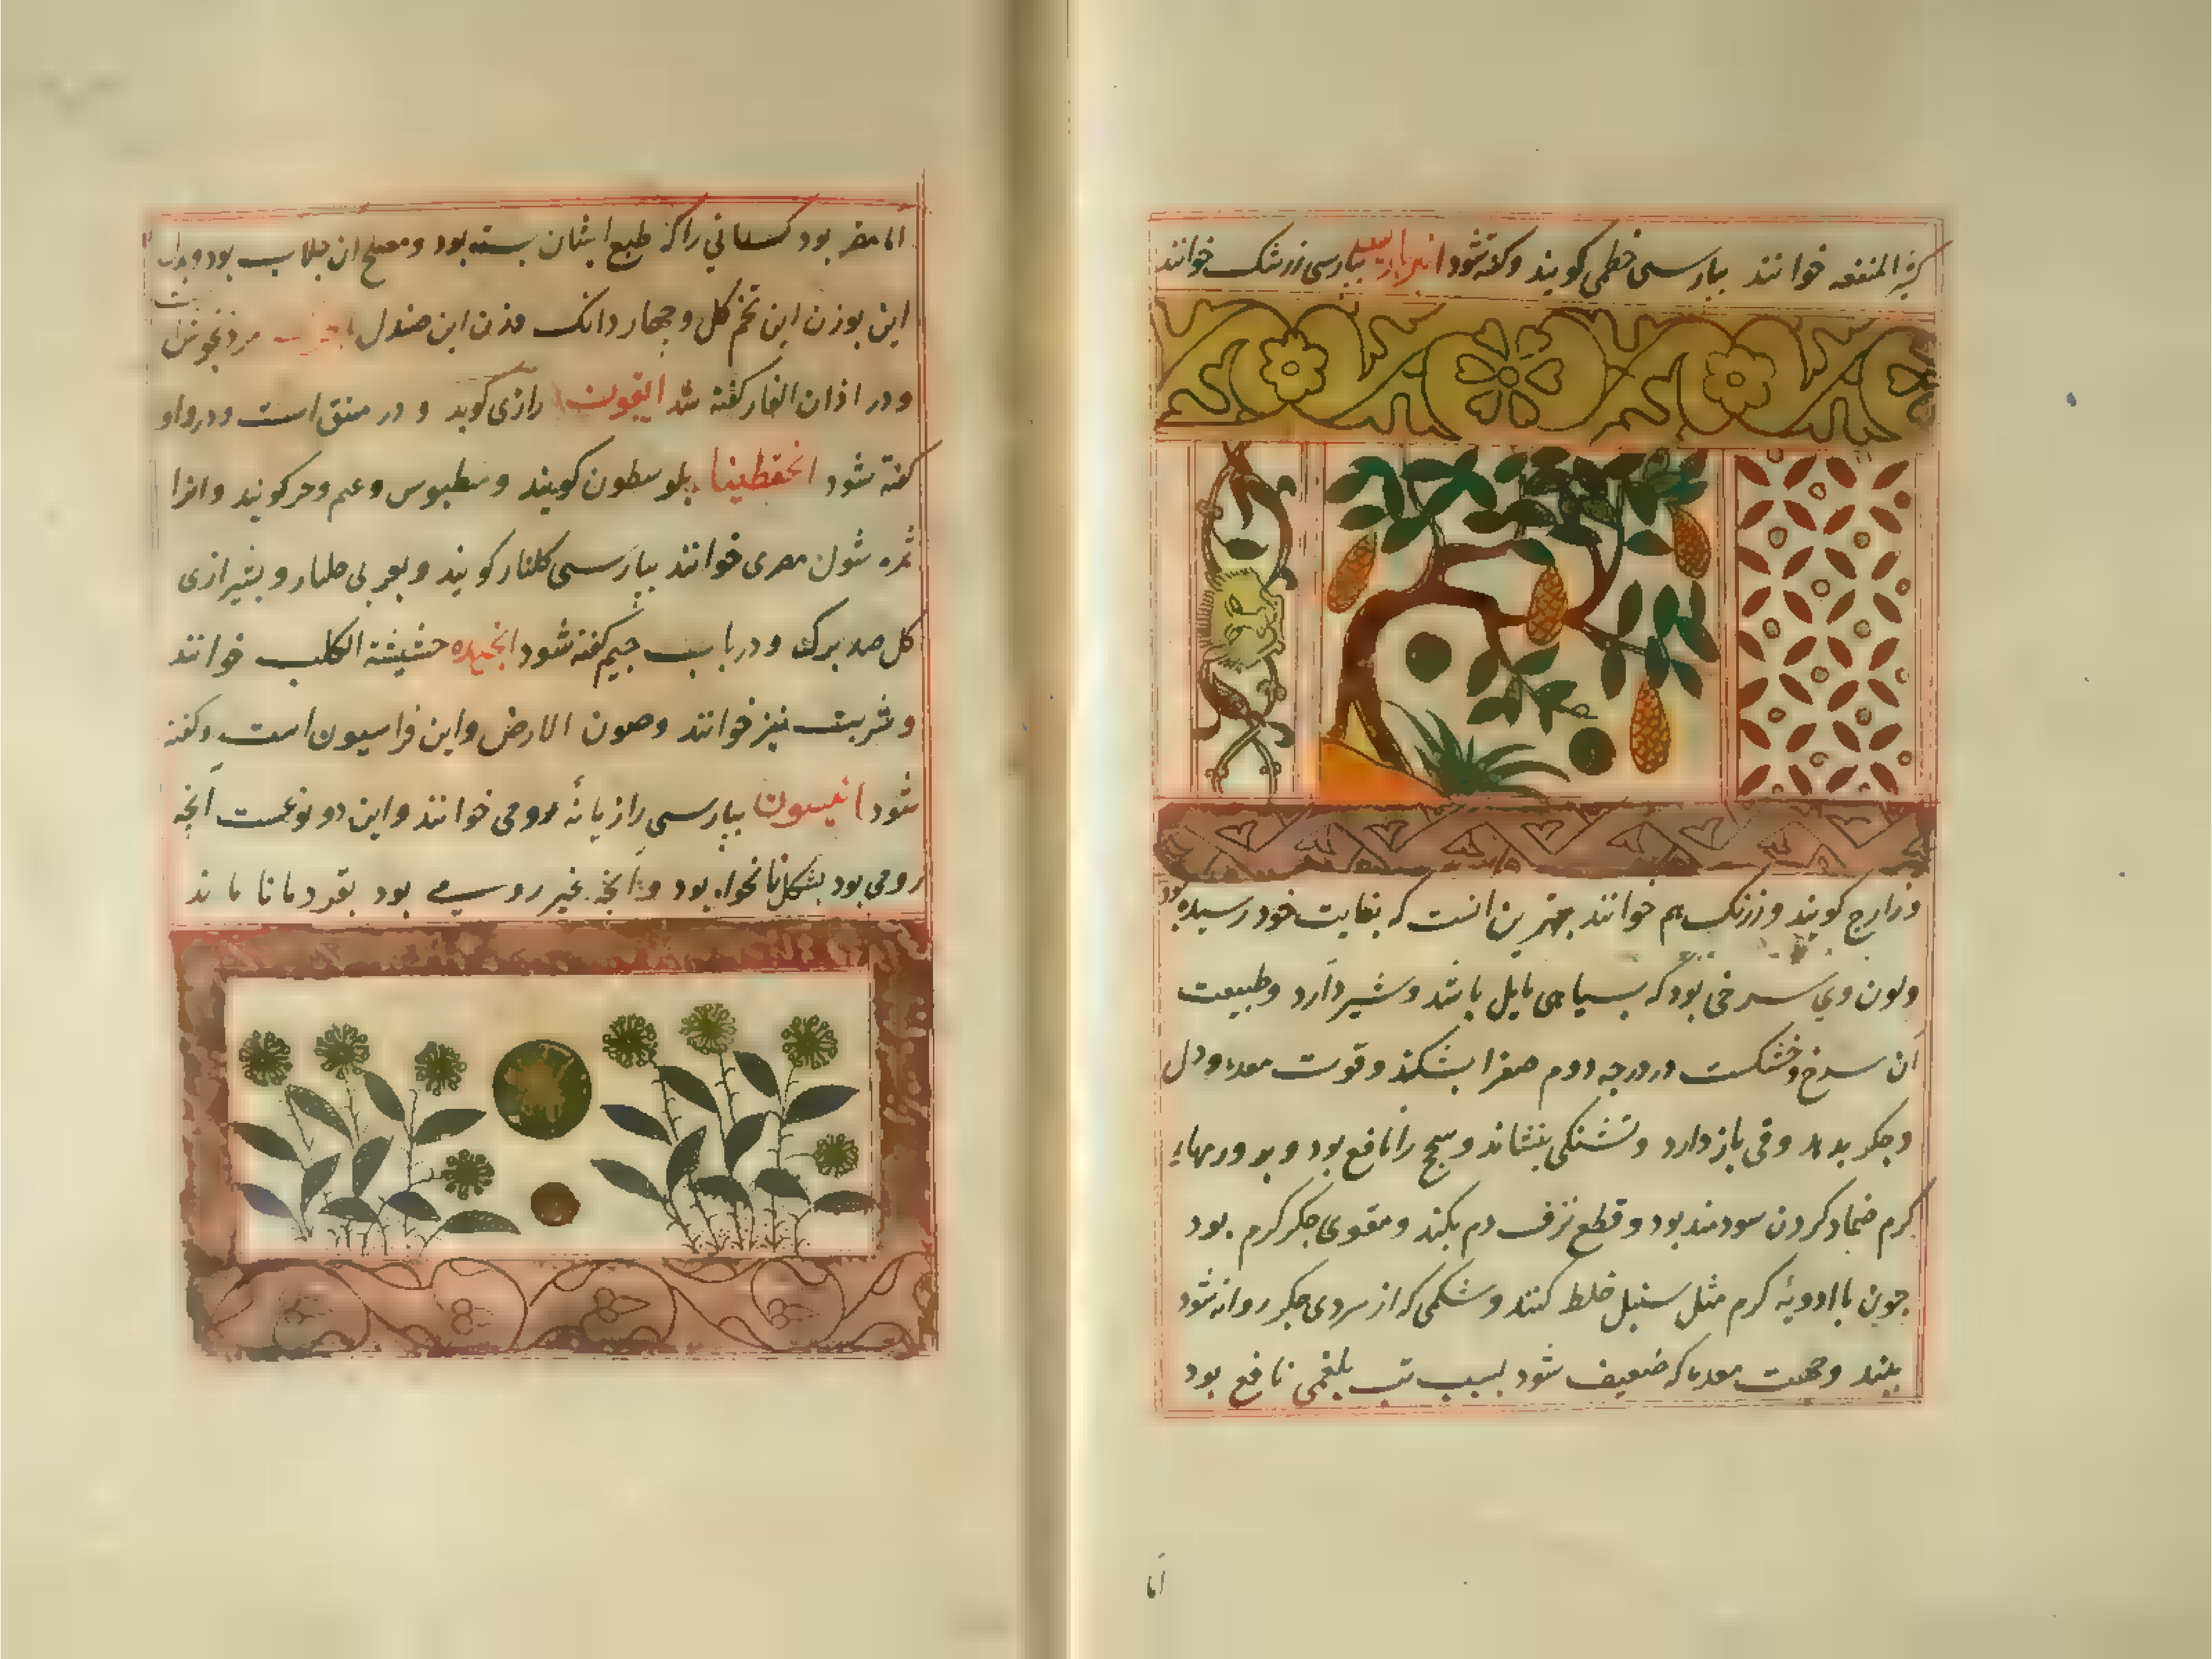 کثیر المنفعه خوانند بپارسی خطمی کویند وکفته شود انبرباریس بپارسی زرشک خوانند
وزارج کویند وزرنک هم خوانند بهترین انست که بغایت خود رسیده بود
ولون وی سرخی بود که بسیاهی مایل باشد و شیر دارد وطبیعت
آن سرخ وخشکست در درجه دوم صفرا بشکند وقوت معده ودل
وجکر بدهد وقی باز دارد وتشنکی بنشاند وسحج را نافع بود و بر ورمهای
کرم ضماد کردن سودمند بود و قطع نزف دم بکند ومقوی جکر کرم بود
چون با ادویهٔ کرم مثل سنبل خلط کنند وشکمی که از سردی جکر روانه شود
ببندد وجهت معده که ضعیف شود بسبب تب بلغمی نافع بود
اما
اما مضر بود کسانی را که طبع ایشان بسته بود ومصلح ان جلاب بود وبدل
این بوزن این تخم کل وچهار دانک وزن این صندل مرزنجوش است
ودر اذان الفار کفته شد ایقون رازی کوید و در منقی است ودر واو
کفته شود انحقطینا بلوسطون کویند و کویند وانرا
ثمره شول مصری خوانند بپارسی کلنار کویند وبعربی جلنار وبشیرازی
کل صد برک ودر باب جیم کفته شود انجیده حشیشة الکلب خوانند
و شربت نیز خوانند وصون الارض واین فراسیون است وکفته
شود انیسون بپارسی رازیانهٔ رومی خوانند واین دو نوعست آنچه
رومی بود بشکل نانخواه بود وآنچه غیر رومی بود بقردمانا ماند